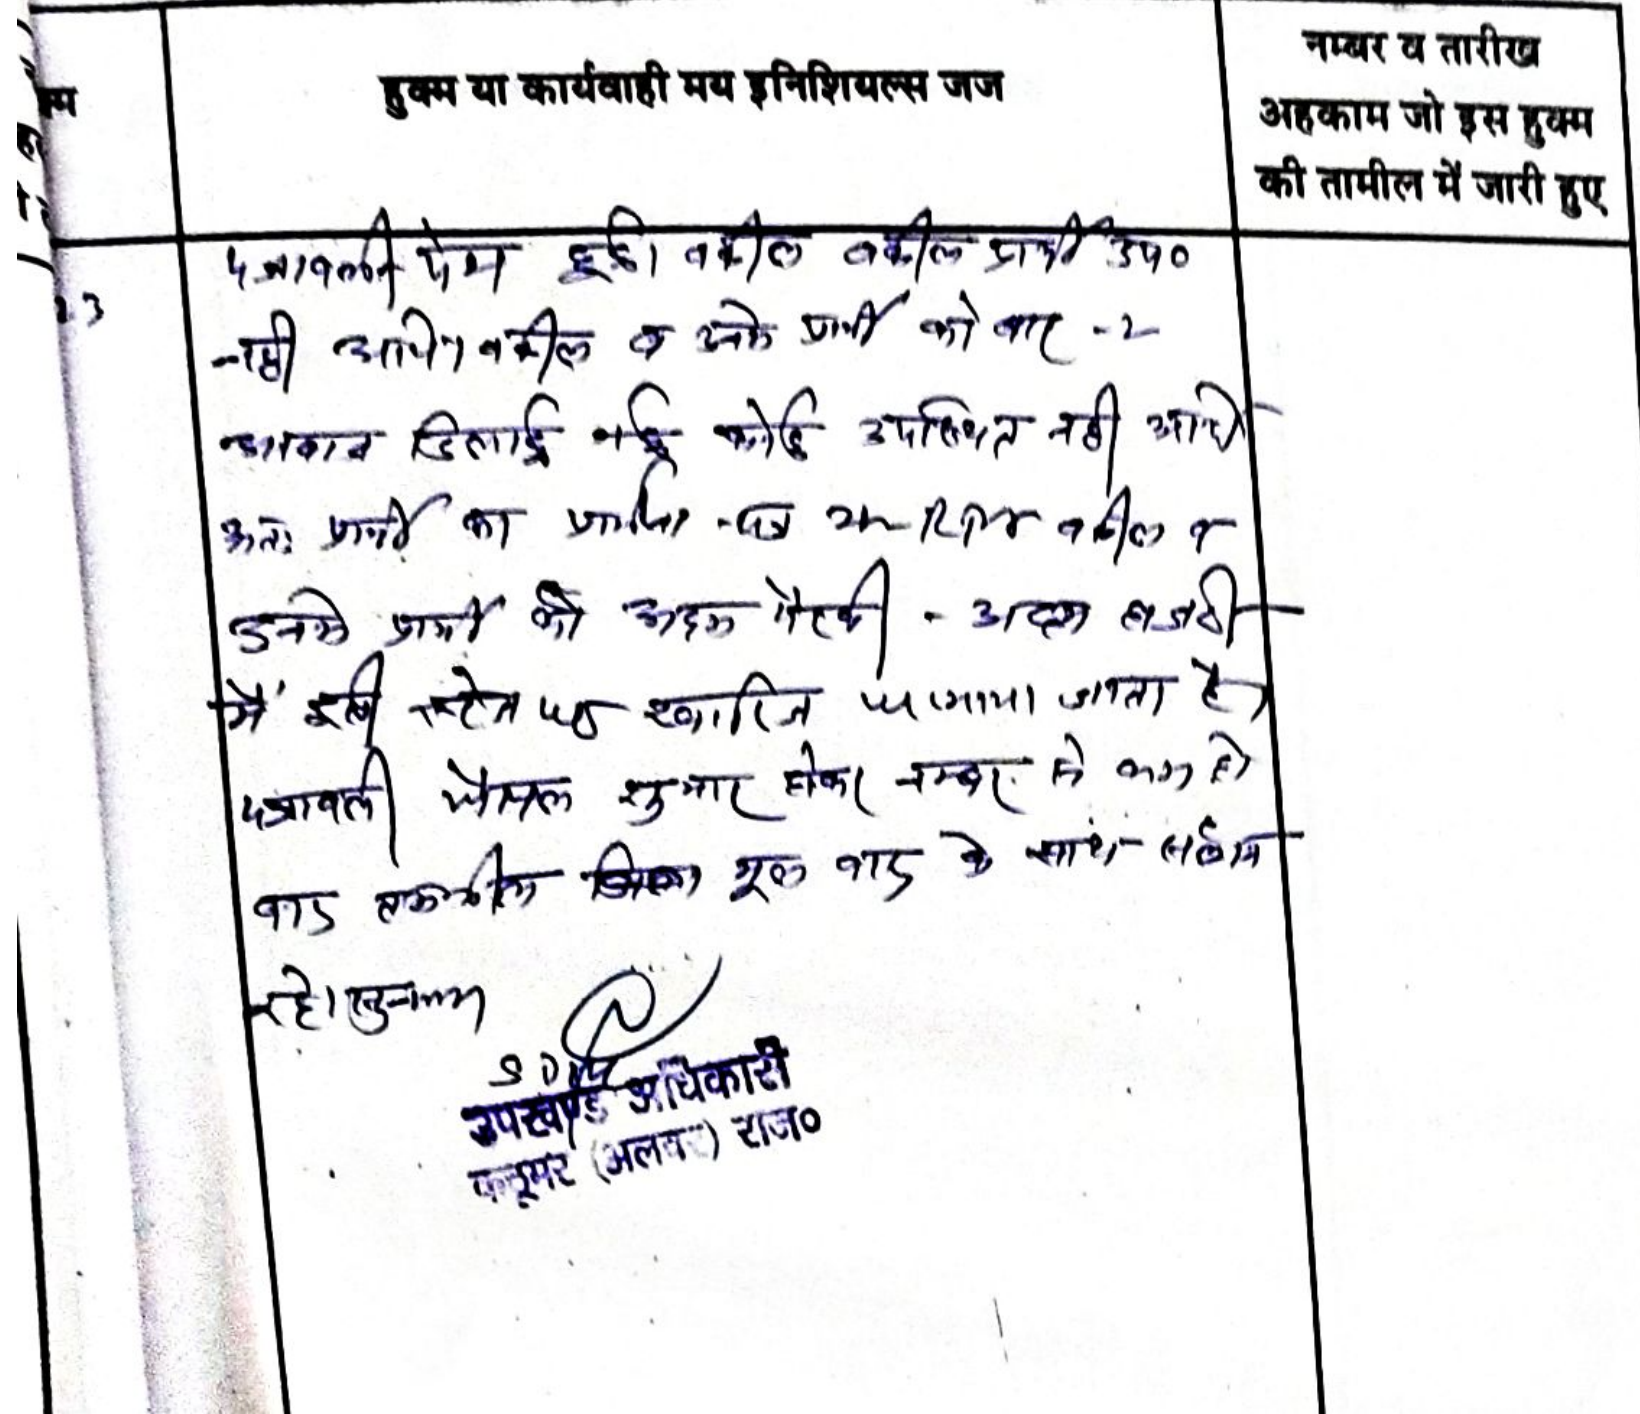 हुक्म या कार्यवाही मय इनिशियल्स जज
नम्बर व तारीख
अहकाम जो इस हुक्म
की तामील में जारी हुए
23
पत्रावली पेश हुई। वकील वकील प्रार्थी उप०
नही आये। वकील व उनके प्रार्थी को बार -2
आवाज दिलाई गई कोई उपस्थित नही आये
अतः प्रार्थी का प्रार्थना पत्र वकील व
उनके प्रार्थी की अदम पैरवी - अदम हाजरी
में इसी स्टेज पर खारिज फरमाया जाता है।
पत्रावली फैसल शुमार होकर नम्बर से कम हो
बाद तकमील मूल वाद के साथ संलग्न
रहे।
SDM
उपखण्ड अधिकारी
कठूमर (अलवर) राज०